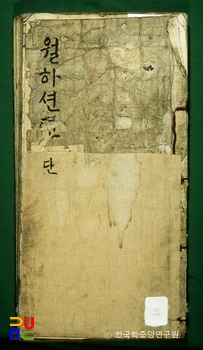 월하션
단
© 한국학중앙연구원